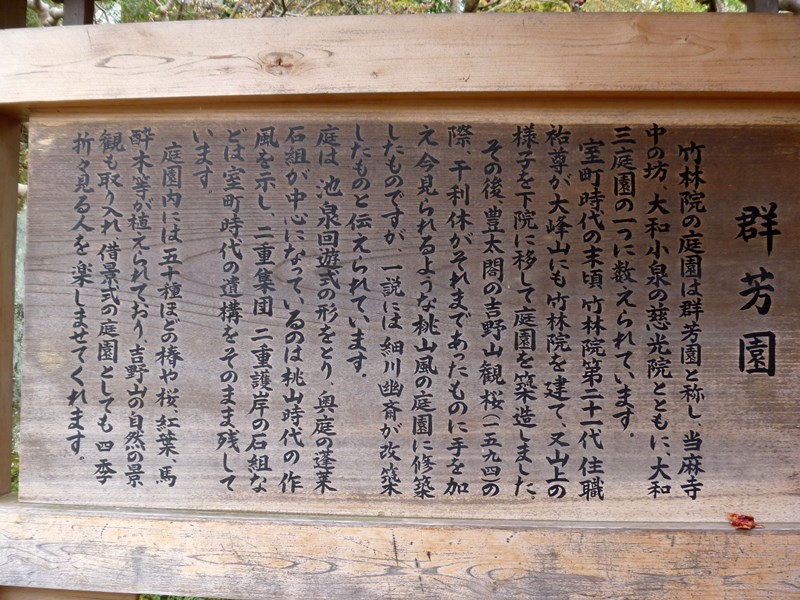 群芳園
竹林院の庭園は群芳園と称し、当麻寺
中の坊、大和小泉の慈光院とともに、大和
三庭園の一つに数えられています。
室町時代の末頃 竹林院第二十一代 住職
祐尊が大峰山にも竹林院を建て、又山上の
様子を下院に移して庭園を築造しました。
その後、豊太閤の吉野山観桜(一五九四)の
際、千利休がそれまであったものに手を加
え 今見られるような桃山風の庭園に修築
したものですが、一説には 細川幽斎が改築
したものと伝えられています。
庭は 池泉回遊式の形をとり、奥庭の蓬莱
石組が中心になっているのは桃山時代の作
風を示し、二重集団 二重護岸の石組な
どは 室町時代の遺構をそのまま残して
います。
庭園内には五十種ほどの椿や桜、紅葉、馬
酔木等が植えられており、吉野山の自然の景
観も取り入れ 借景式の庭園としても 四季
折々見る人を楽しませてくれます。